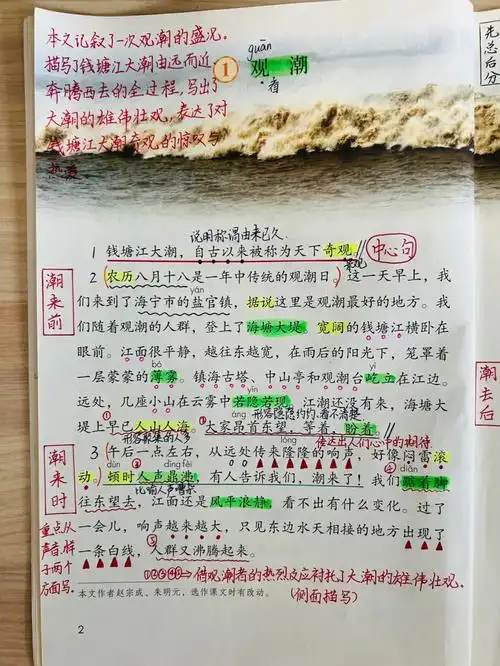 本文记叙了一次观潮的盛况。
描写了钱塘江大潮由远而近
奔腾西去的全过程,写出了
大潮的雄伟壮观,表达了对
钱塘江大潮奇观的惊叹与
热爱
guān
1 观潮
看
先总后分
说明称谓由来已久
1 钱塘江大潮,自古以来被称为天下奇观。
中心句
潮来前
2 农历八月十八是一年中传统的观潮日。这一天早上,我
yán
们来到了海宁市的盐官镇,据说这里是观潮最好的地方。我
们随着观潮的人群,登上了海塘大堤。宽阔的钱塘江横卧在
眼前。江面很平静,越往东越宽,在雨后的阳光下,笼罩着
bó yì
一层蒙蒙的薄雾。镇海古塔、中山亭和观潮台屹立在江边。
yǐn
远处,几座小山在云雾中若隐若现。江潮还没有来,海塘大
áng 形容隐隐约约,看不清楚
堤上早已人山人海。大家昂首东望,等着,盼着。
形容聚集的人多
传达出人们心中的期待
潮来时
lóng
3 午后一点左右,从远处传来隆隆的响声,好像闷雷滚
dùn dǐng fèi diǎn
动。顿时人声鼎沸,有人告诉我们,潮来了!我们踮着脚
比喻人声嘈杂
往东望去,江面还是风平浪静,看不出有什么变化。过了
一会儿,响声越来越大,只见东边水天相接的地方出现了
一条白线,人群又沸腾起来。
潮去后
重点从
声音、样
子两个
方面写。
①②③④借观潮者的热烈反应衬托了大潮的雄伟壮观。
(侧面描写)
本文作者赵宗成、朱明元,选作课文时有改动。
2